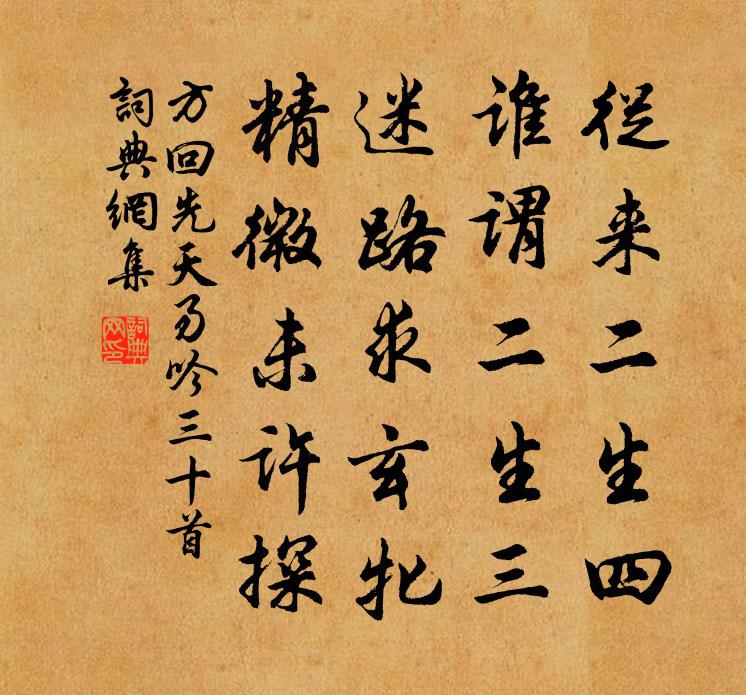 從来二生四
誰謂二生三
迷路求玄牝
精微未許探
方回先天易吟三十首
詞典網集
詞典
网印